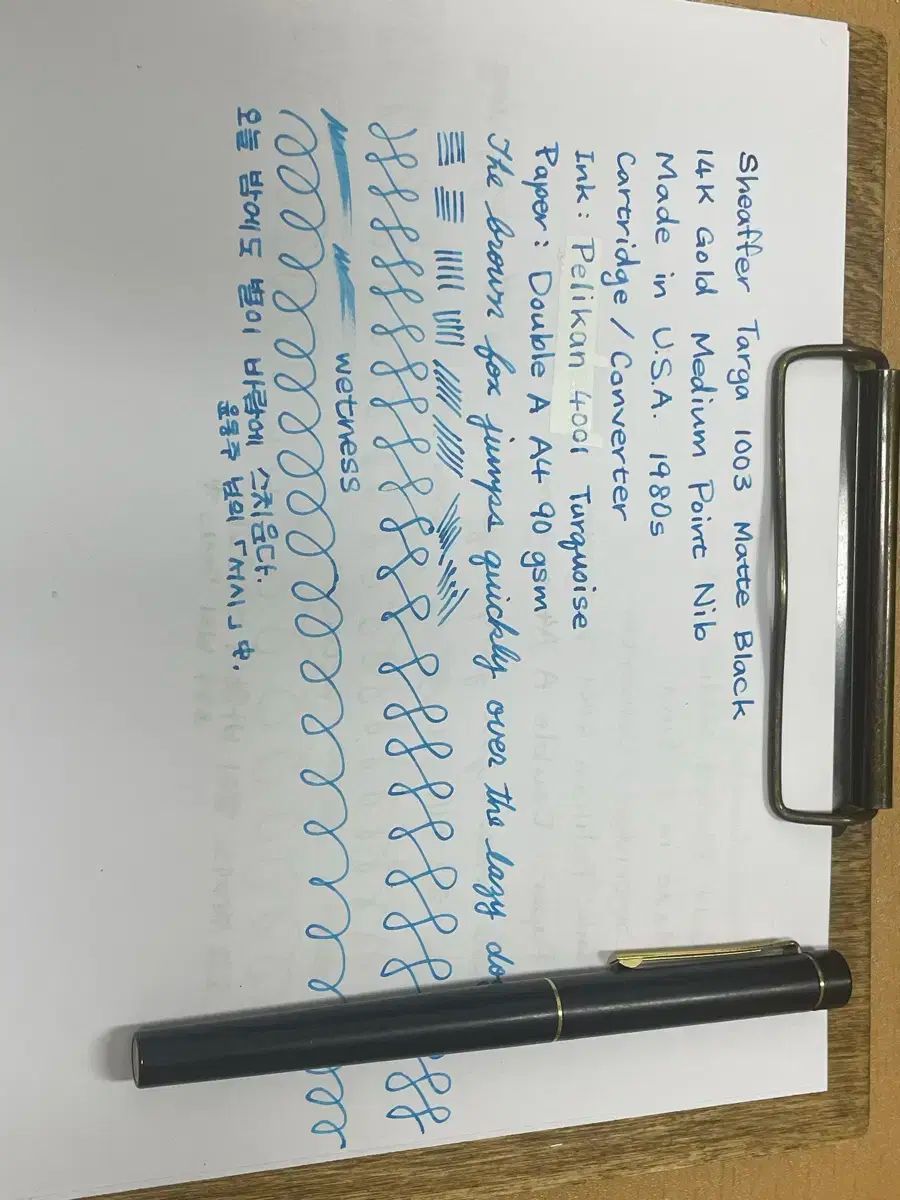 Sheaffer Targa 1003 Matte Black
14K Gold Medium Point Nib
Made in U.S.A. 1980s
Cartridge / Converter
Ink : Pelikan 4001 Turquoise
Paper : Double A A4 90 gsm
The brown fox jumps quickly over the lazy do
wetness
오늘 밤에도 별이 바람에 스치운다.
윤동주 님의 「서시」 中.